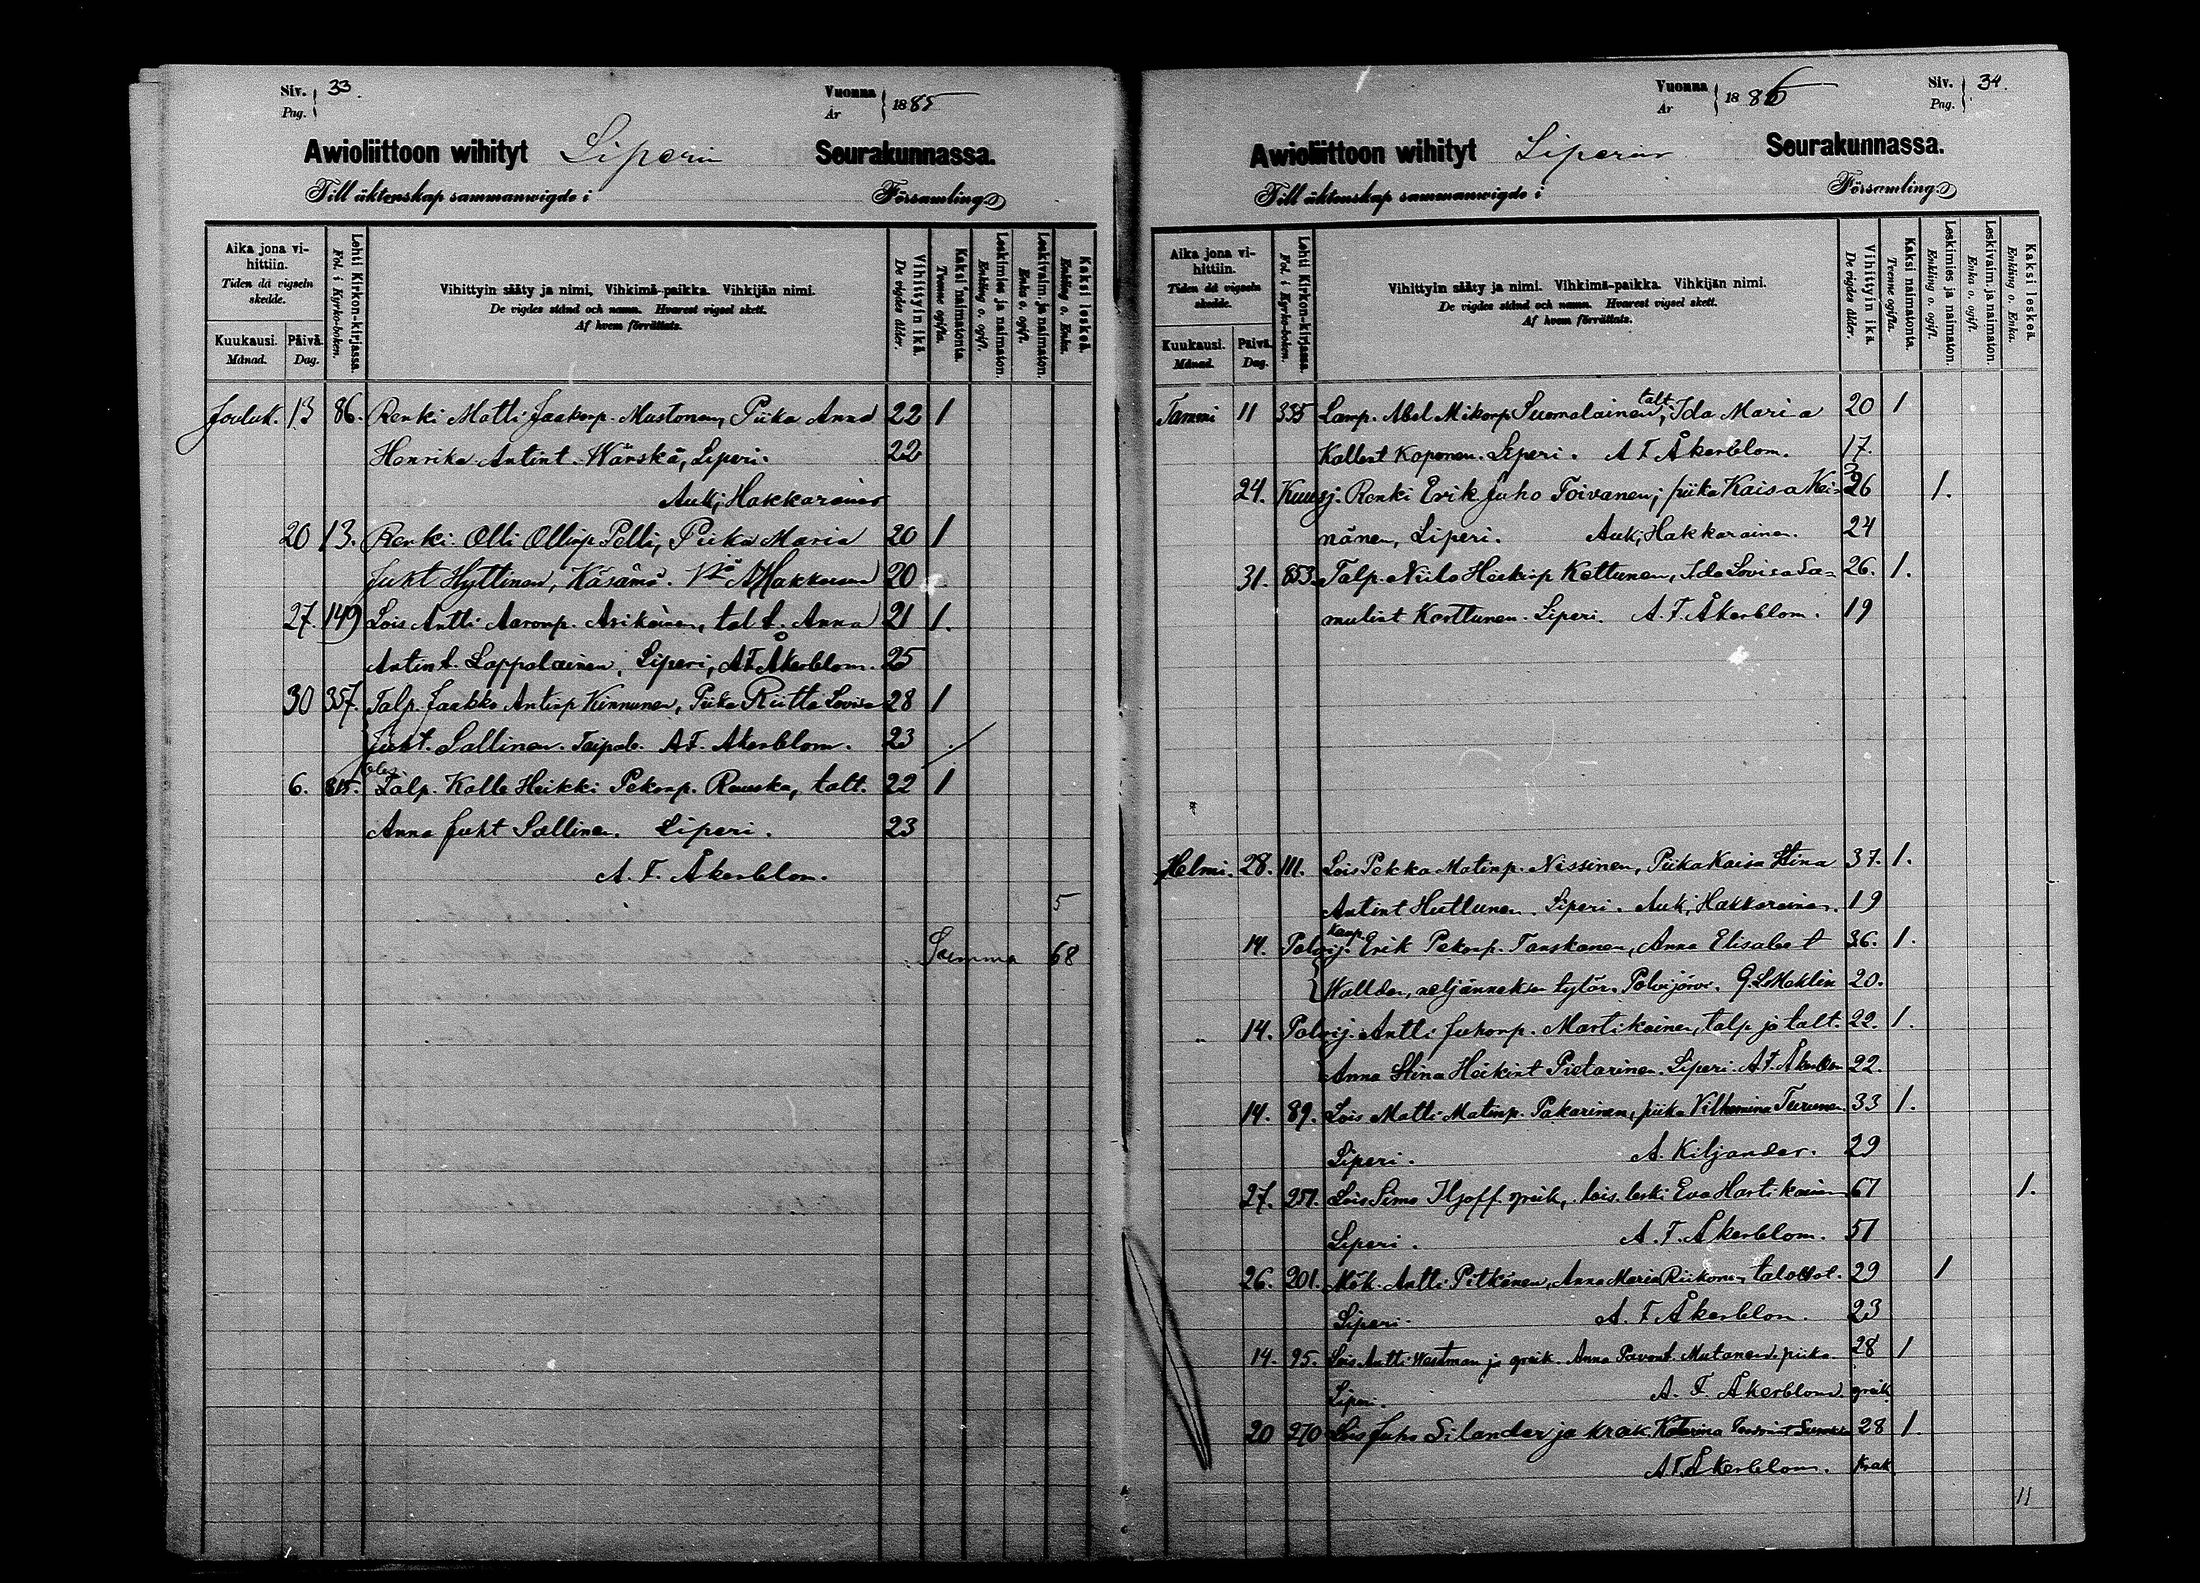 Siv. Pag. 33.
Vuonna År 1885
Awioliittoon wihityt Liperin Seurakunnassa.
Till äktenskap sammanwigde i Församling.
Aika jona vihittiin.
Tiden då vigseln skedde.
Kuukausi. Månad.
Päivä. Dag.
Lehti Kirkon-kirjassa. Fol. i Kyrko-boken.
Vihittyin sääty ja nimi, Vihkimä-paikka. Vihkijän nimi.
De vigdes stånd och namn. Hvarest vigsel skett.
Af hvem förrättats.
Vihittyin ikä. De vigdes ålder.
Kaksi naimatonta. Tvenne ogifta.
Leskimies ja naimaton. Enkling o. ogift.
Leskivaim. ja naimaton. Enka o. ogift.
Kaksi leskeä. Enkling o. Enka.
Jouluk. 13 86. Renki Matti Jaakonp. Mustonen, Piika Anna 22 1
Henrika Antint. Wänskä, Liperi. 22
Auk; Hakkarainen
20 13. Renki Olli Ollinp Pelli, Piika Maria 20 1
Juht Hyttinen, Käsämä. A Hakkarainen 20
27. 149 Lois Antti Aaronp. Asikainen, tal t. Anna 21 1.
Antint. Lappalainen, Liperi, A F Åkerblom. 25
30 357. Talp. Jaakko Antinp Kinnunen, Piika Riitta Lovisa 28 1
Juht. Sallinen. Taipal. A F. Åkerblom. 23
6. 815. Talp. Kalle Heikki Pekanp. Rouska, talt. 22 1
Anna Juht Sallinen. Liperi. 23
A. F. Åkerblom.
5
Summa 68
Vuonna År 1886
Siv. Pag. 34.
Awioliittoon wihityt Liperin Seurakunnassa.
Till äktenskap sammanwigde i Församling.
Aika jona vihittiin.
Tiden då vigseln skedde.
Kuukausi. Månad.
Päivä. Dag.
Lehti Kirkon-kirjassa. Fol. i Kyrko-boken.
Vihittyin sääty ja nimi. Vihkimä-paikka. Vihkijän nimi.
De vigdes stånd och namn. Hvarest vigsel skett.
Af hvem förrättats.
Vihittyin ikä. De vigdes ålder.
Kaksi naimatonta. Tvenne ogifta.
Leskimies ja naimaton. Enkling o. ogift.
Leskivaim. ja naimaton. Enka o. ogift.
Kaksi leskeä. Enkling o. Enka.
Tammi 11 335 Lamp. Abel Mikonp Suomalainen, talt. Ida Maria 20 1
Kallest Koponen. Liperi. A F Åkerblom. 17.
24. Kuusj. Renki Erik Juho Toivanen; piika Kaisa Hei- 36 1.
nänen, Liperi. Auk; Hakkarainen. 24
31. 853. Talp. Niilo Heikinp Kettunen, Ida Lovisa Sa= 26. 1.
mulint Korttunen. Liperi. A. F. Åkerblom. 19
Helmi. 28. 111. Lois Pekka Matinp. Nissinen, Piika Kaisa Stina 37. 1.
Antint Huttunen. Liperi. Auk; Hakkarainen. 19
14. Polvij. Kanp. Erik Pekanp. Tanskanen, Anna Elisabet 36. 1.
Wallden, neljänneksen tytär. Polvijärvi. G. L. Maklin 20.
14. Polvij. Antti Juhonp. Martikainen, talp ja talt. 22. 1.
Anna Stina Heikint Pietarinen. Liperi. A. F. Åkerblom 22.
14. 89. Lois Matti Matinp. Pakarinen, piika Vilhemina Turunen. 33 1.
Liperi. A. Kiljander. 29
27. 251. Lois Simo Iljoff greik, lois. leski Eva Hartikainen 67 1.
Liperi. A. F. Åkerblom. 51
26. 201. Mök. Antti Pitkänen, Anna Maria Riikonen, 29 1
Liperi. A. F Åkerblom. 23
14. 95. Lois Antti Wartman ja greik. Anna Pavont. Mutanen piika 28 1
Liperi. A. F. Åkerblom. greik
20 270 Lois Juho Silander ja krak. Katarina 28 1
A F Åkerblom. krak.
11